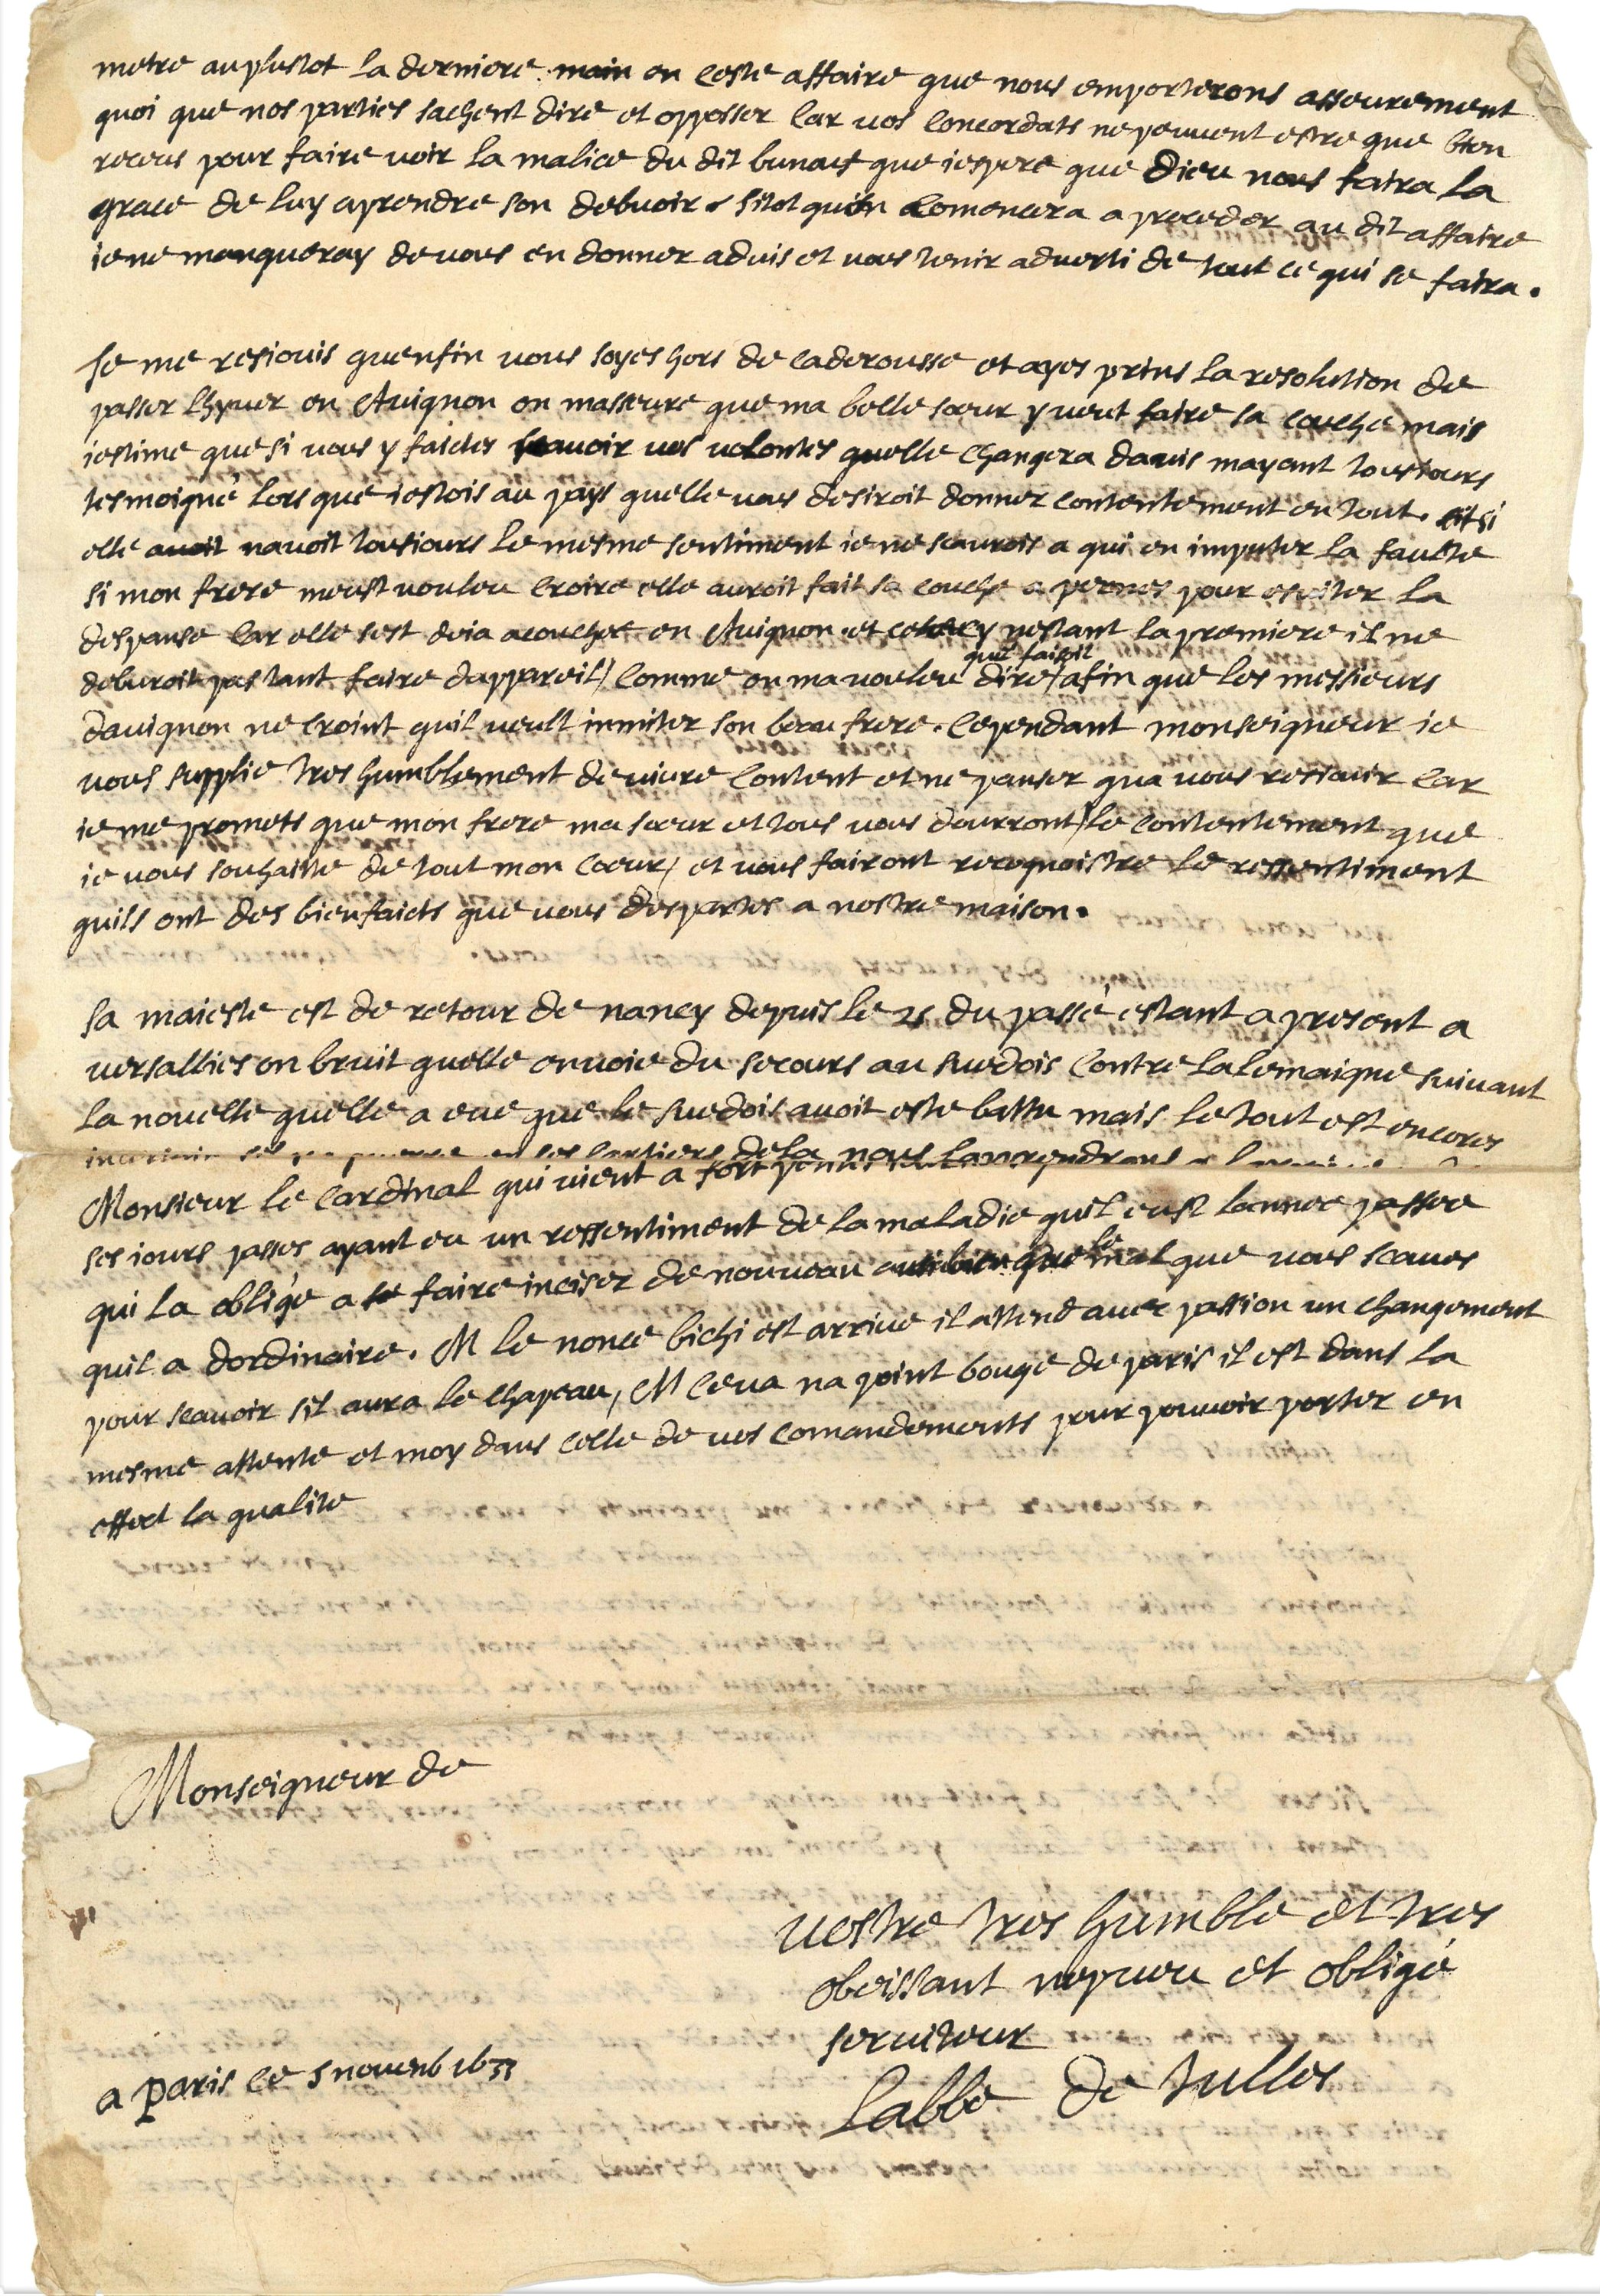 metre auplustot la derniere main en ceste affaire que nous emporterons asseurement
quoi que nos parties sachent dire et opposser car vos concordats ne peuvent estre que bien
receus pour faire voir la malice du dit que iespere que Dieu nous faira la
grace de luy aprendre son debvoir sitot quon comencera a proceder au dit affaire
ie ne manqueray de vous en donner advis et vous tenir adverti de tout ce qui se faira.
Ie me resiouis quenfin vous soyes hors de caderousse et ayes prins la resolution de
passer lhyver en Avignon on masseure que ma belle sœur y veut faire sa couche mais
iestime que si vous y faictes scavoir vos volontes quelle changera davis mayant tousiours
tesmoigné lors que iestois au pays quelle vous desiroit donner contentement en tout. et si
elle navoit tousiours le mesme sentiment ie ne scaurois a qui en imputer la faulte
si mon frere meust voulou croire elle auroit fait sa couche a pernes pour esviter la
despanse car elle sest deia acouchee en Avignon et cellecy nestant la premiere il ne
debvroit pas tant faire dappareil, comme on ma voulou dire que faisoit afin que les messieurs
davignon ne croint quil veult immiter son beau frere. Cependant monseigneur ie
vous supplie tres humblement de vivre content et ne panser qua vous resiouir car
ie me promets que mon frere ma sœur et tous vous donrront le contentement que
ie vous souhaitte de tout mon cœur, et vous fairont recognoistre le ressentiment
quils ont des bienfaicts que vous despartes a nostre maison.
sa maieste est de retour de nancy depuis le 25 du passé estant a present a
versallies on bruit quelle envoie du secours au suedois contre lalemaigne suivant
la nouvelle quelle a eue que le suedois avoit este battu mais le tout est encores
de la nous lapprendrons
Monsieur le cardinal qui vient a fort
ses iours passes ayant eu un ressentiment de la maladie quil eust lannee passee
qui la obligé a se faire inciser de nouveau le mal que vous scaves
quil a dordinaire. M le nonce bichi est arrive il attend avec passion un changement
pour scavoir sil aura le chapeau, M Ceva na point bougé de paris il est dans la
mesme attente et moy dans celle de vos comandements pour pouvoir porter en
effect la qualite
Monseigneur de
vostre tres humble et tres
obeissant nepveu et obligé
serviteur
Labbe de Tulles
a Paris ce 5 novemb 1633